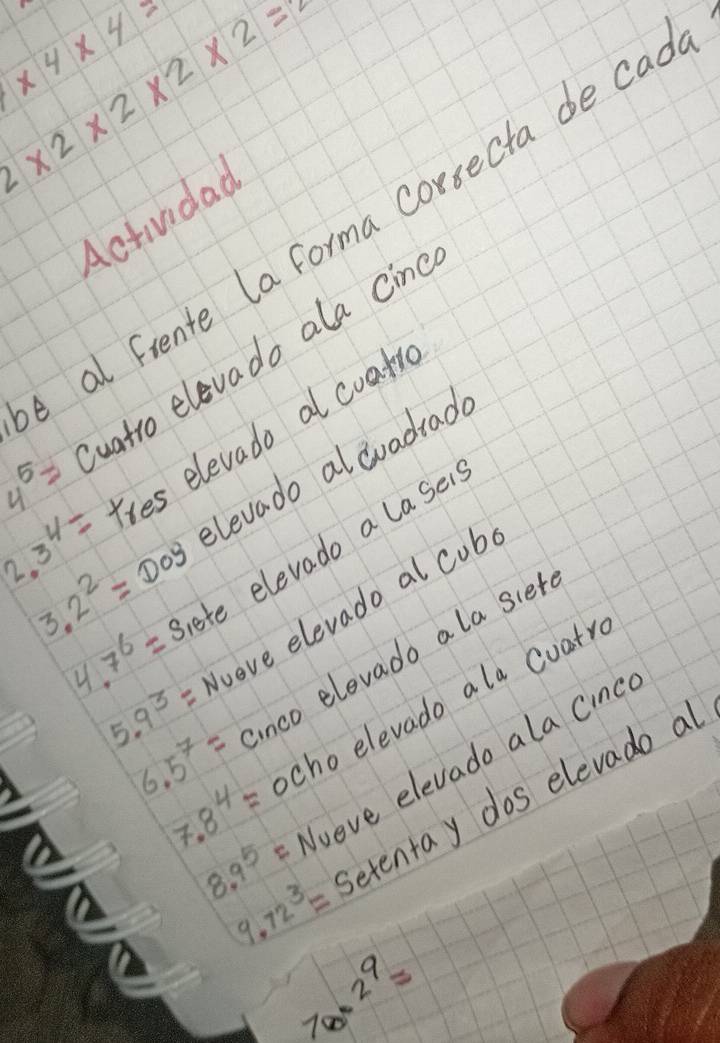 × 4 × 4 =
2 × 2 × 2 × 2 × 2 =
Actividad
ibe al frente la forma correcta de cada
4⁵ = Cuatro elevado ala cinco
2. 3⁴ = tres elevado al cuatro
3. 2² = Dos elevado al cuadrado
4. 7⁶ = Siete elevado a la seis
5. 9³ = Nueve elevado al cubo
6. 5⁷ = cinco elevado ala siete
7. 8⁴ = ocho elevado ala cuatro
8. 9⁵ = Nueve elevado ala cinco
9. 72³ = Setenta y dos elevado al
2⁹ =